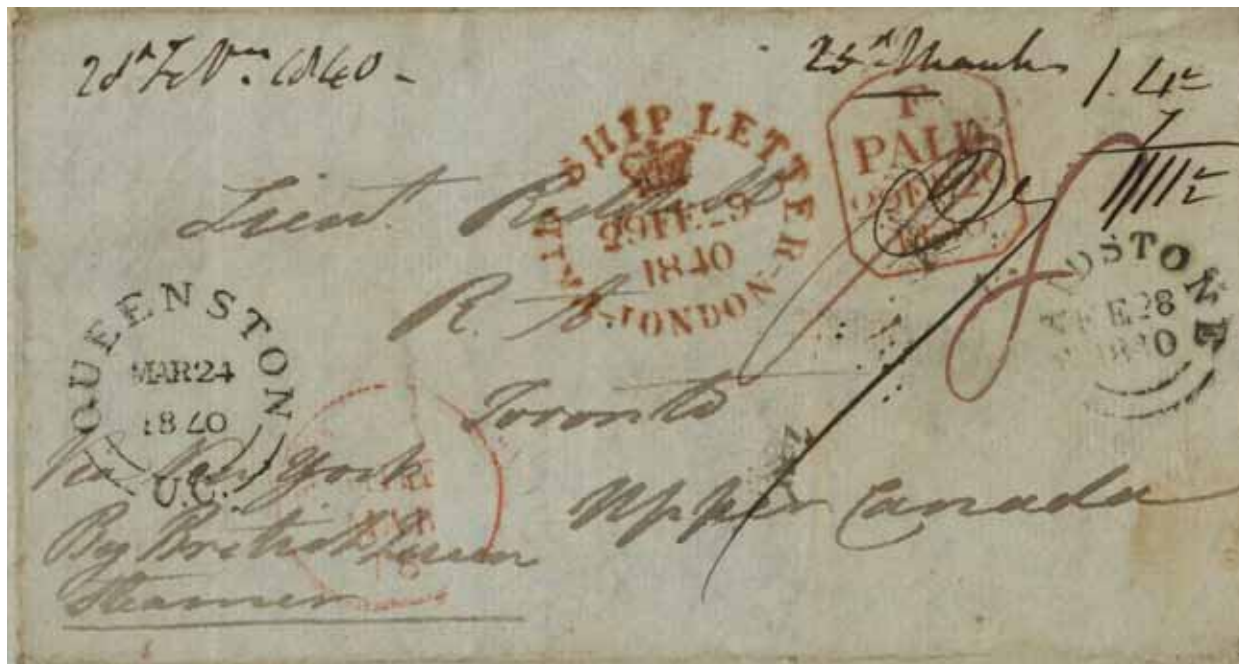 28th Febry. 1840 -
25th March
1.4½
SHIP LETTER
29 FE 29
1840
LONDON
P
PAID
1840
Lieut.
R. A.
Toronto
Upper Canada
FOLKSTONE
FE 28
1840
QUEENSTON
MAR 24
1840
U.C.
Via New York
By British Queen
Steamer